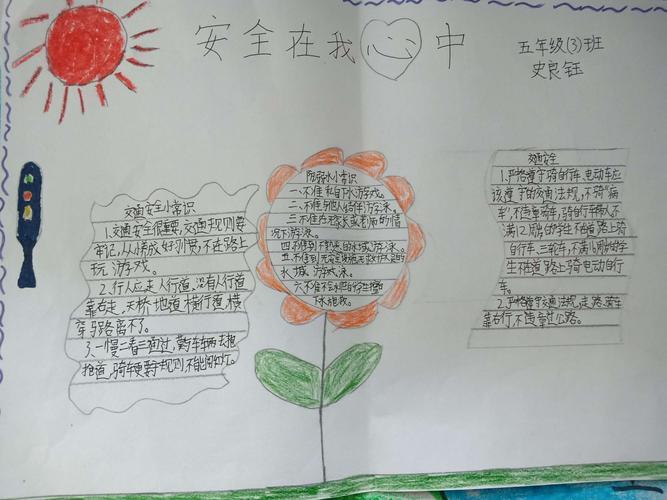 安全在我心中
五年级(3)班
史良钰
交通安全小常识
1.交通安全很重要,交通规则要
牢记,从小养成好习惯,不在路上
玩游戏。
2.行人应走人行道,没有人行道
靠右走,天桥地道横行道,横
穿马路离不了。
3.一慢二看三通过,莫与车辆去抢
抢道,骑车更要守规则,不能闯红灯。
防溺水小常识
一、不准私自下水游戏。
二、不准与他人结伴游泳。
三、不准在无家长或老师的情
况下游泳。
四、不准到不熟悉的水域游泳。
五、不准到无安全设施、无救护人员的
水域游泳。
六、不准不会水性的学生擅自
下水施救。
交通安全
1.严格遵守骑自行车、电动车应
该遵守的交通法规,不骑"病
车",不违章骑车,骑自行车不带人,不
满12周岁的学生不在道路上骑
自行车、三轮车,不满16周岁的学
生不在道路上骑电动自行
车。
2.严格遵守交通法规,走路、骑车
靠右行,不违章过公路。